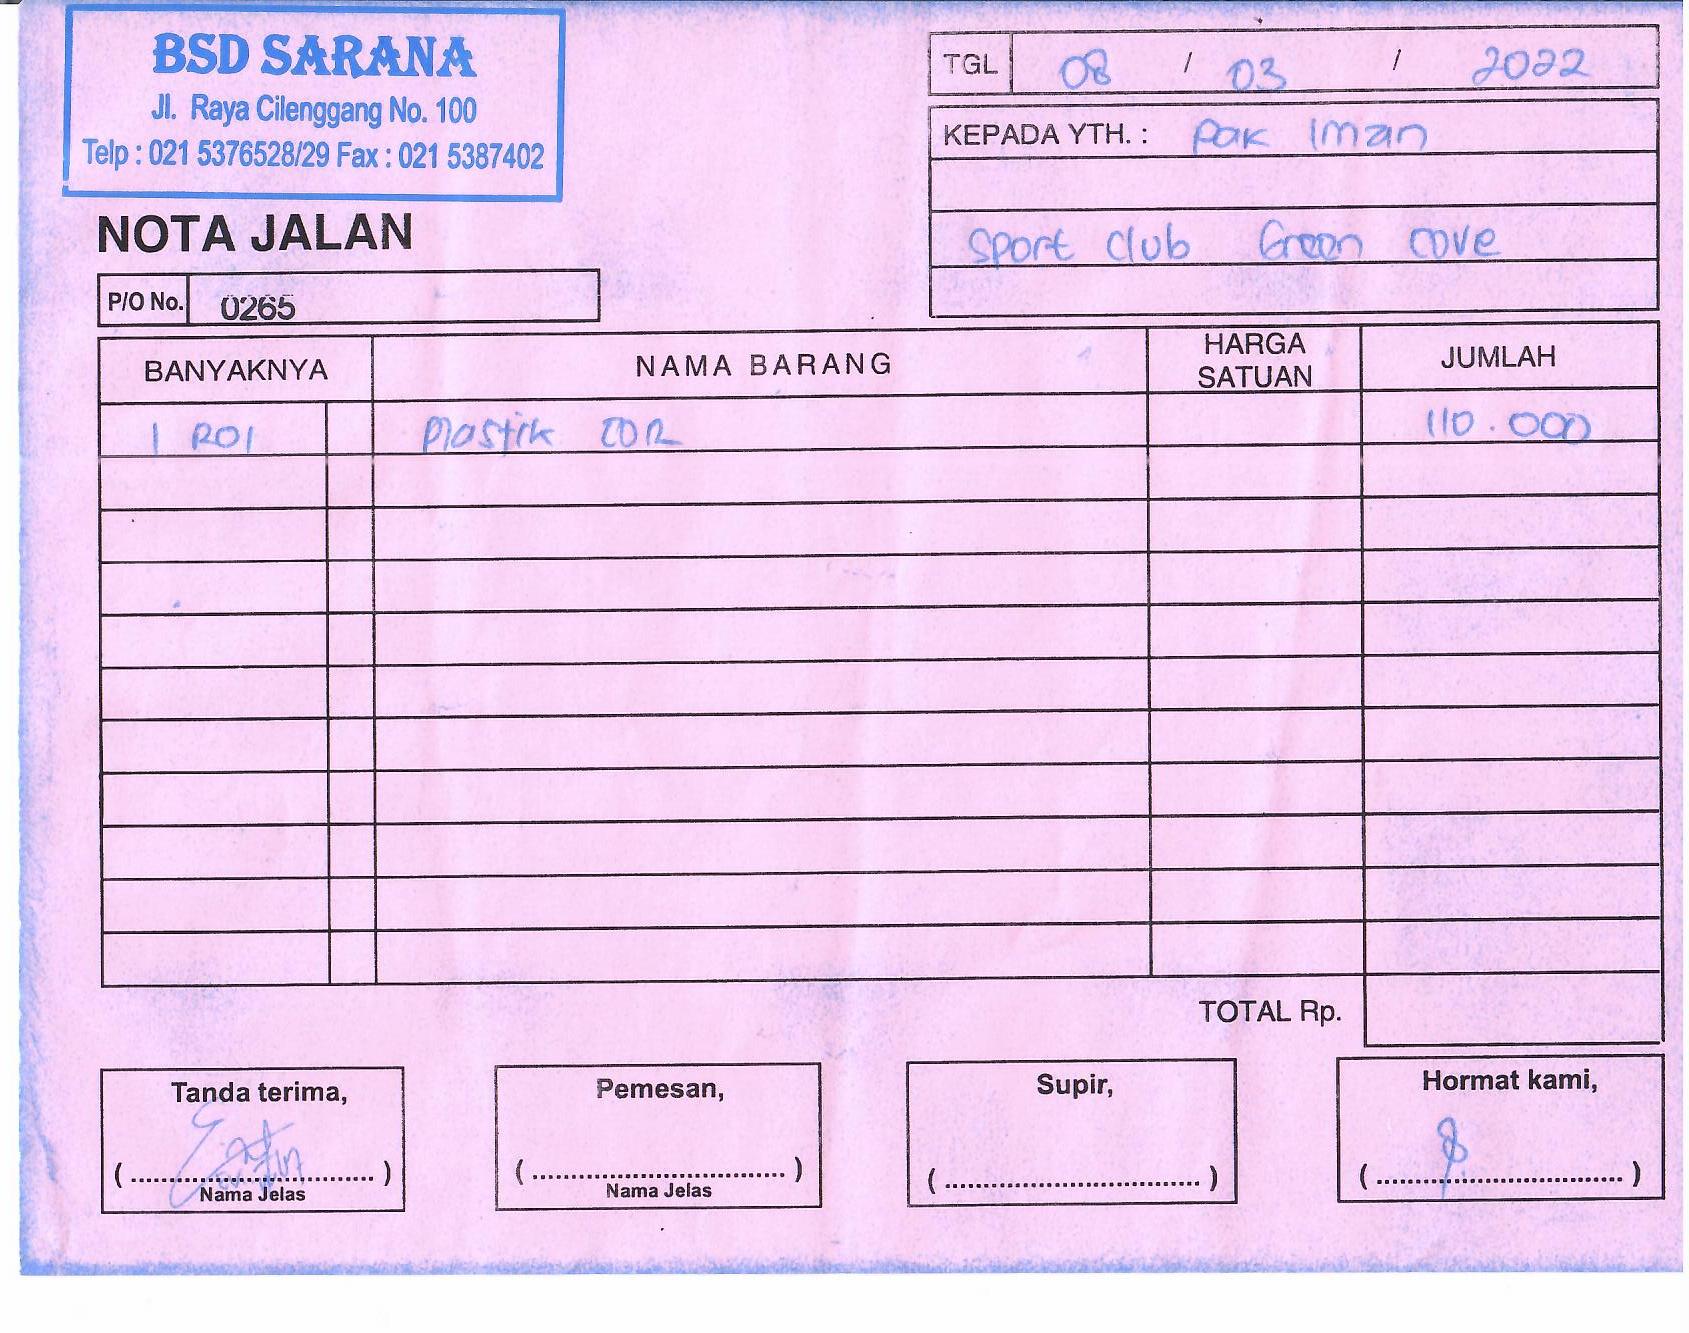 BSD SARANA
Jl. Raya Cilenggang No. 100
Telp : 021 5376528/29 Fax : 021 5387402
TGL 08 / 03 / 2022
KEPADA YTH. : Pak Iman
Sport Club Green Cove
NOTA JALAN
P/O No. 0265
BANYAKNYA NAMA BARANG HARGA SATUAN JUMLAH
1 ROl Plastik COR 110.000
TOTAL Rp.
Tanda terima, Pemesan, Supir, Hormat kami,
(....................................) (....................................) (....................................) (....................................)
Nama Jelas Nama Jelas